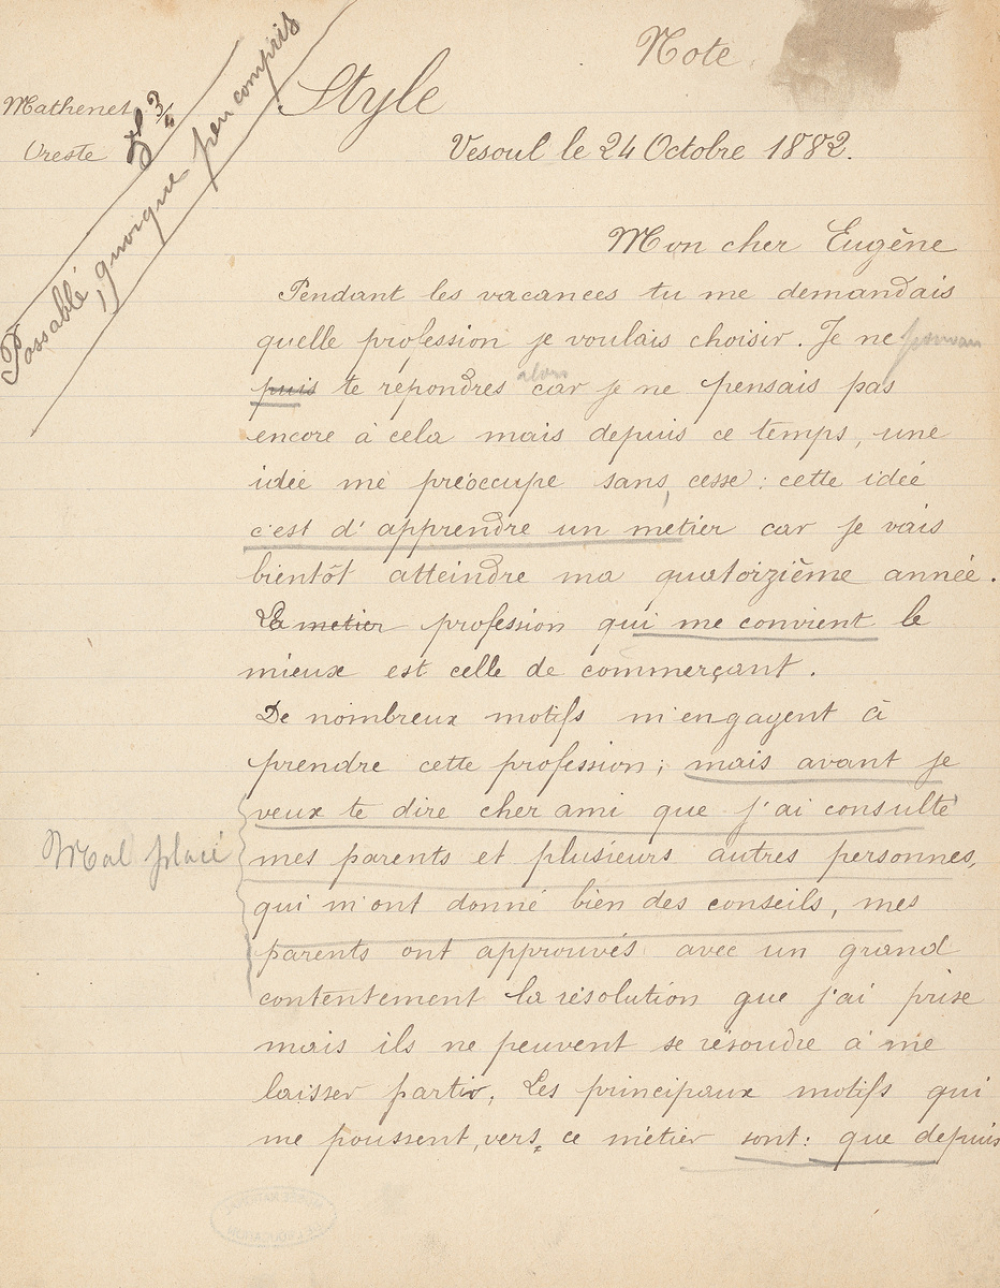 Note.
Style
Mathenet
Oreste
Passable, quoique peu compris
Vesoul le 24 Octobre 1882.
Mon cher Eugène
Pendant les vacances tu me demandais
quelle profession je voulais choisir. Je ne pouvais
puis te répondres alors car je ne pensais pas
encore à cela mais depuis ce temps, une
idée me préoccupe sans cesse : cette idée
c'est d'apprendre un métier car je vais
bientôt atteindre ma quatorzième année.
La metier profession qui me convient le
mieux est celle de commerçant.
De nombreux motifs m'engagent à
prendre cette profession; mais avant je
veux te dire cher ami que j'ai consulté
Mal placé
mes parents et plusieurs autres personnes,
qui m'ont donné bien des conseils, mes
parents ont approuvés avec un grand
contentement la résolution que j'ai prise
mais ils ne peuvent se résoudre à me
laisser partir. Les principaux motifs qui
me poussent, vers, ce métier sont: que depuis